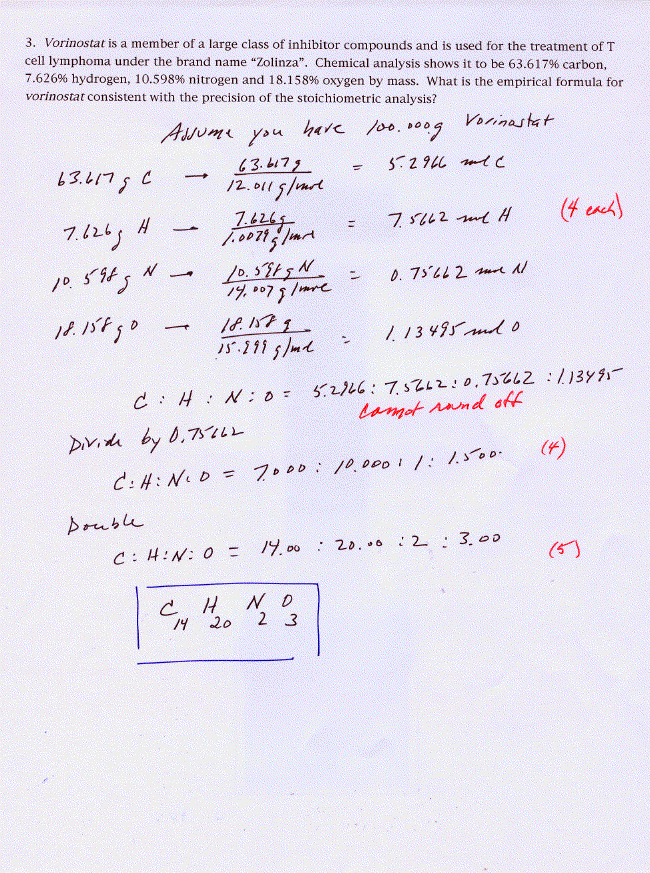 3. Vorinostat is a member of a large class of inhibitor compounds and is used for the treatment of T
cell lymphoma under the brand name “Zolinza”. Chemical analysis shows it to be 63.617% carbon,
7.626% hydrogen, 10.598% nitrogen and 18.158% oxygen by mass. What is the empirical formula for
vorinostat consistent with the precision of the stoichiometric analysis?
Assume you have 100.000g Vorinastat
63.617 g C → 63.617g / 12.011 g/mol = 5.2966 mol C
7.626g H — 7.626g / 1.0079 g/mol = 7.5662 mol H (4 each)
10.598 g N — 10.598 g N / 14.007 g/mol = 0.75662 mol N
18.158 g O — 18.158 g / 15.999 g/mol = 1.13495 mol O
C : H : N : O = 5.2966 : 7.5662 : 0.75662 : 1.13495
Cannot round off
Divide by 0.75662
C : H : N : O = 7.000 : 10.000 : 1 : 1.500. (4)
Double
C : H : N : O = 14.00 : 20.00 : 2 : 3.00 (5)
C14 H20 N2 O3